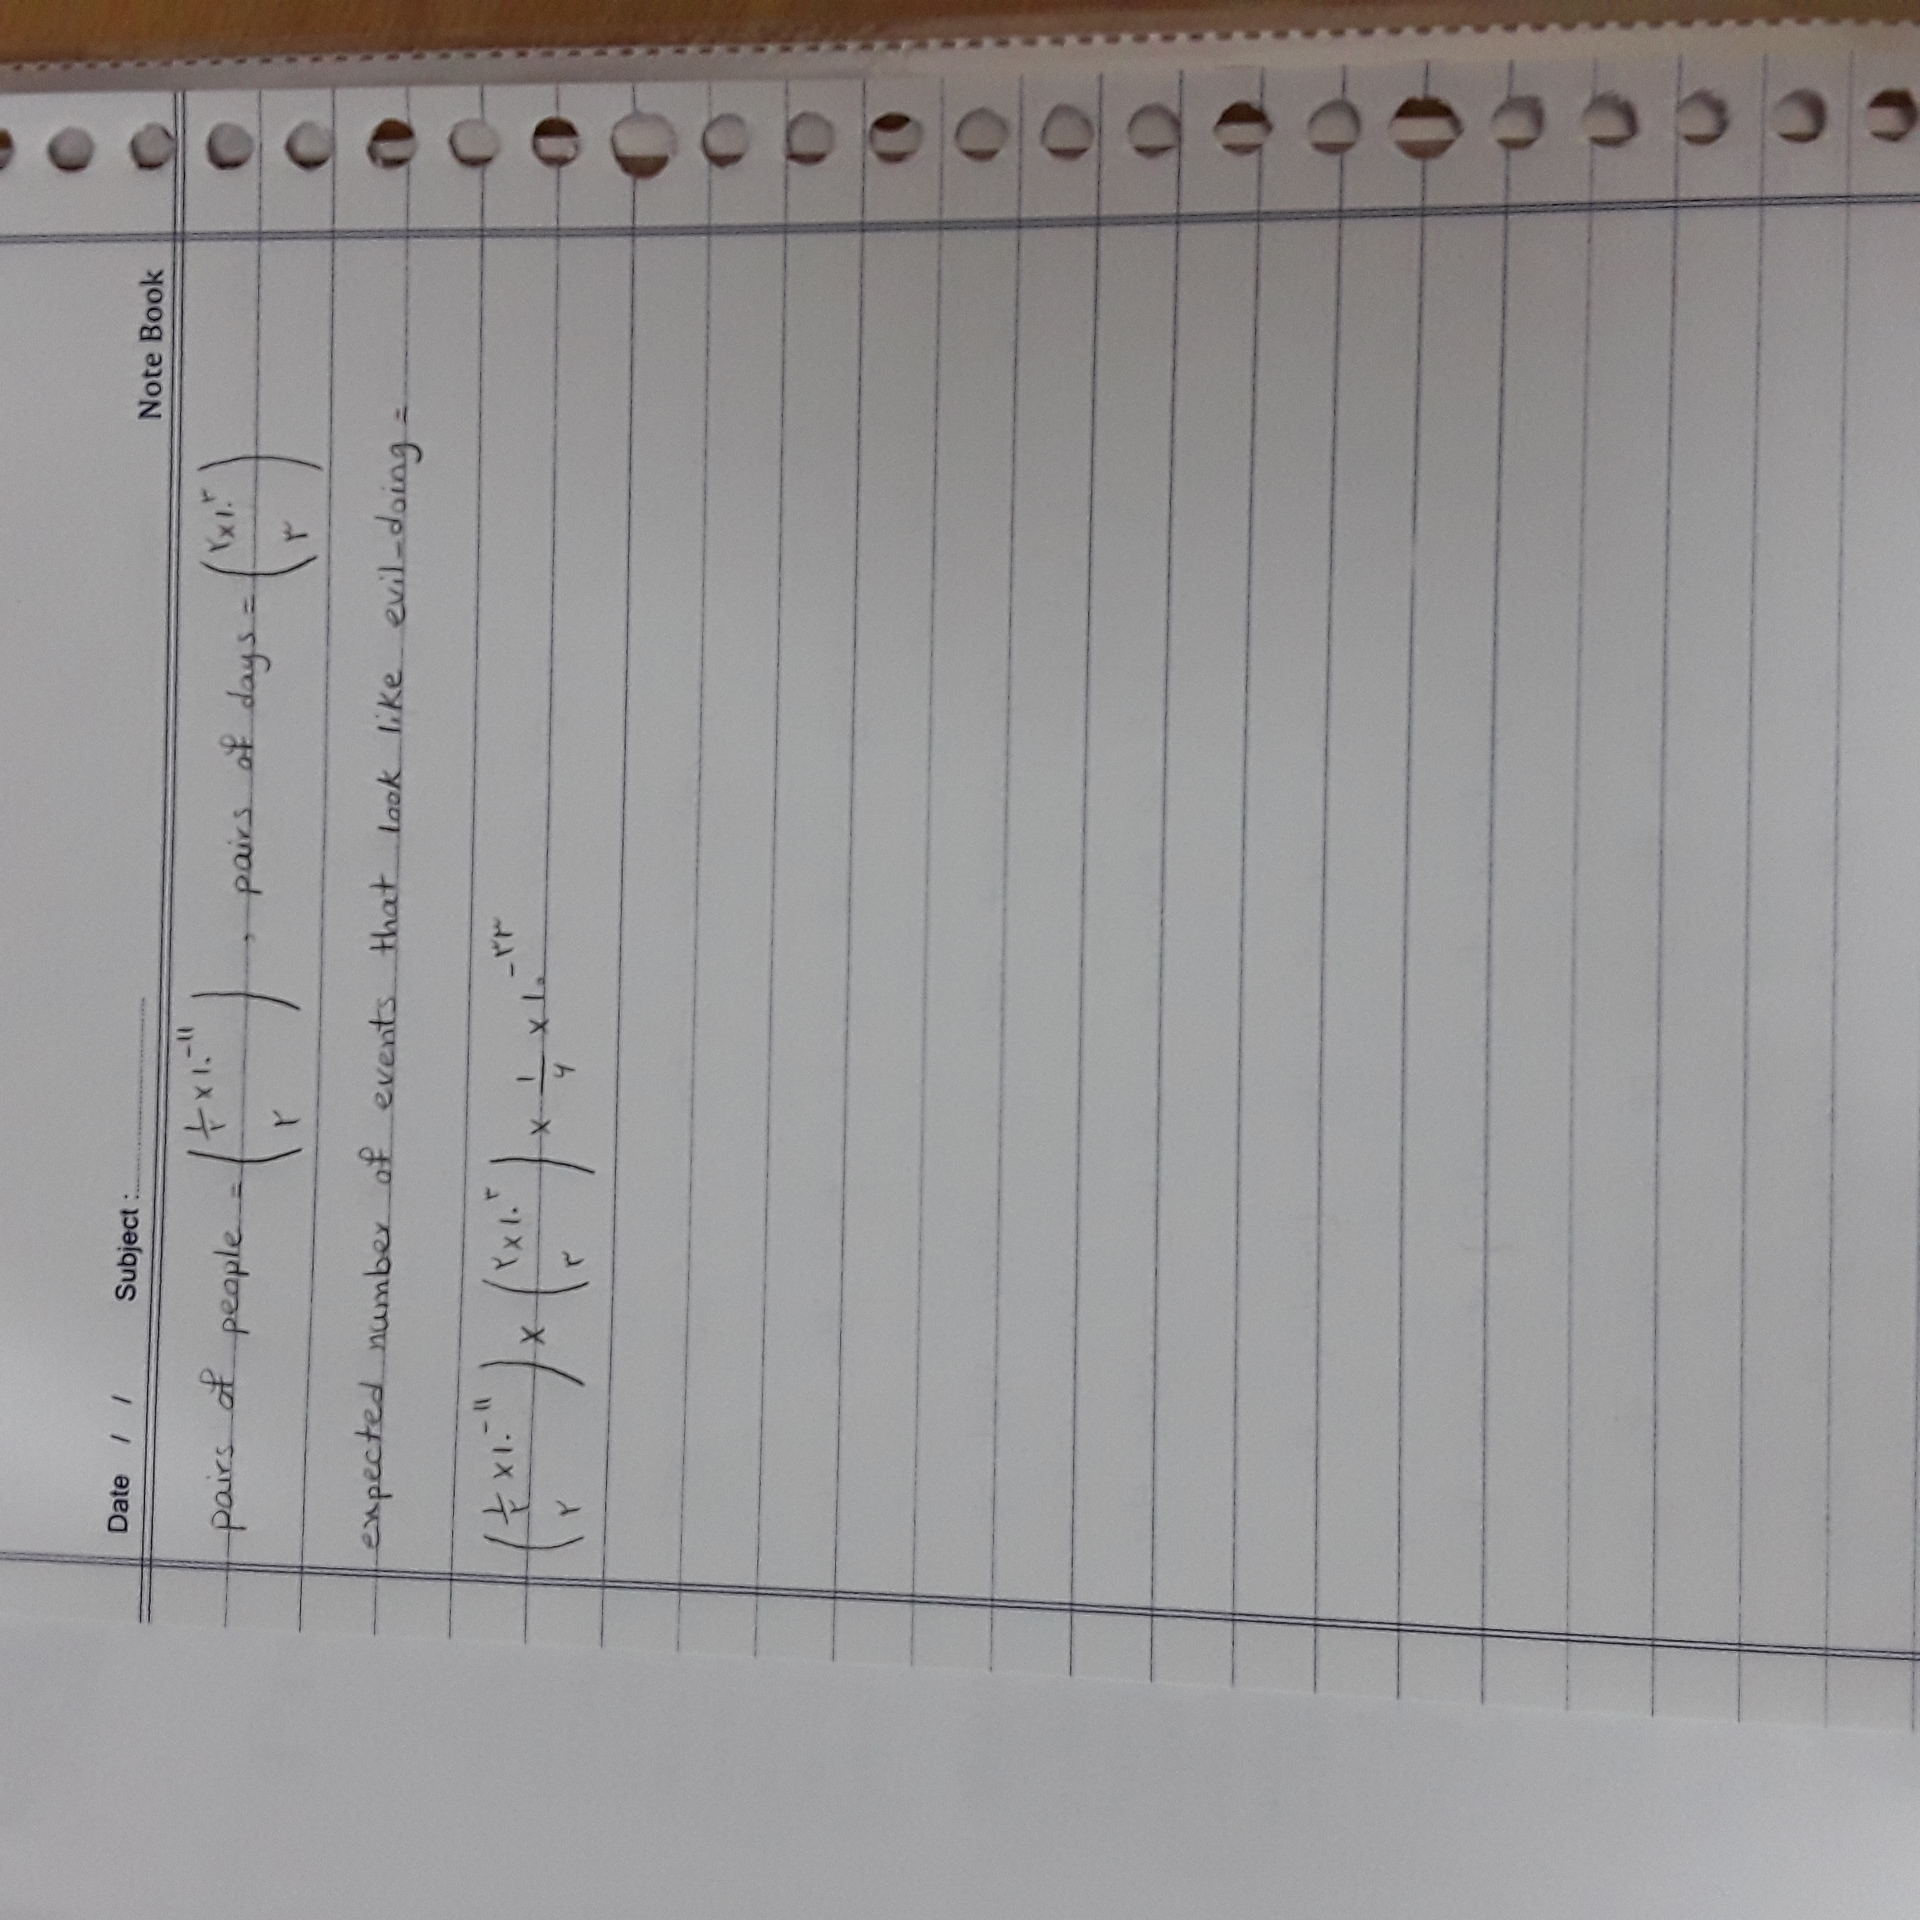 Date / / Subject : Note Book
pairs of people = (½ × ۱۰^-۱۱ / ۲) , pairs of days = (۲×۱۰^۳ / ۳)
expected number of events that look like evil-doing =
(½ × ۱۰^-۱۱ / ۲) × (۲×۱۰^۳ / ۳) × ۱/۴ × ۱۰^-۳۳